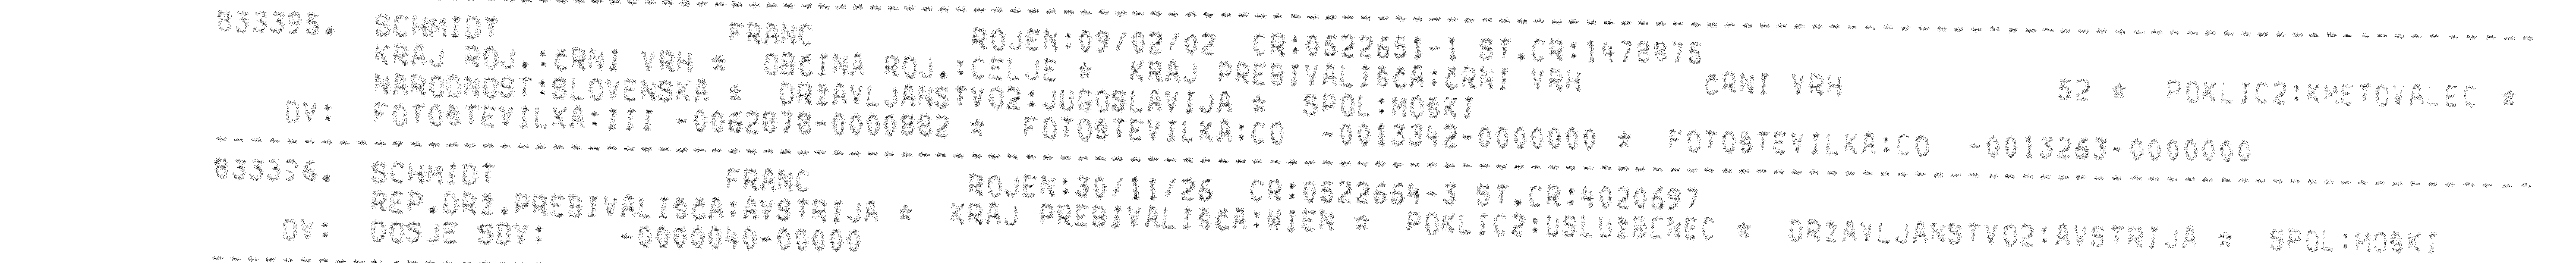 833395. SCHMIDT FRANC ROJEN:09/02/02 CR:0522651-1 ST.CR:1478875
KRAJ ROJ.:ČRNI VRH * OBČINA ROJ.:CELJE * KRAJ PREBIVALIŠČA:ČRNI VRH ČRNI VRH 52 * POKLIC2:KMETOVALEC *
NARODNOST:SLOVENSKA * DRŽAVLJANSTVO2:JUGOSLAVIJA * SPOL:MOŠKI
DV: FOTOŠTEVILKA:III -0062878-0000882 * FOTOŠTEVILKA:CO -0013342-0000000 * FOTOŠTEVILKA:CO -0013263-0000000
833396. SCHMIDT FRANC ROJEN:30/11/26 CR:0522664-3 ST.CR:4020697
REP.DRŽ.PREBIVALIŠČA:AVSTRIJA * KRAJ PREBIVALIŠČA:WIEN * POKLIC2:USLUŽBENEC * DRŽAVLJANSTVO2:AVSTRIJA * SPOL:MOŠKI
DV: DOSJE SDV: -0000040-00000